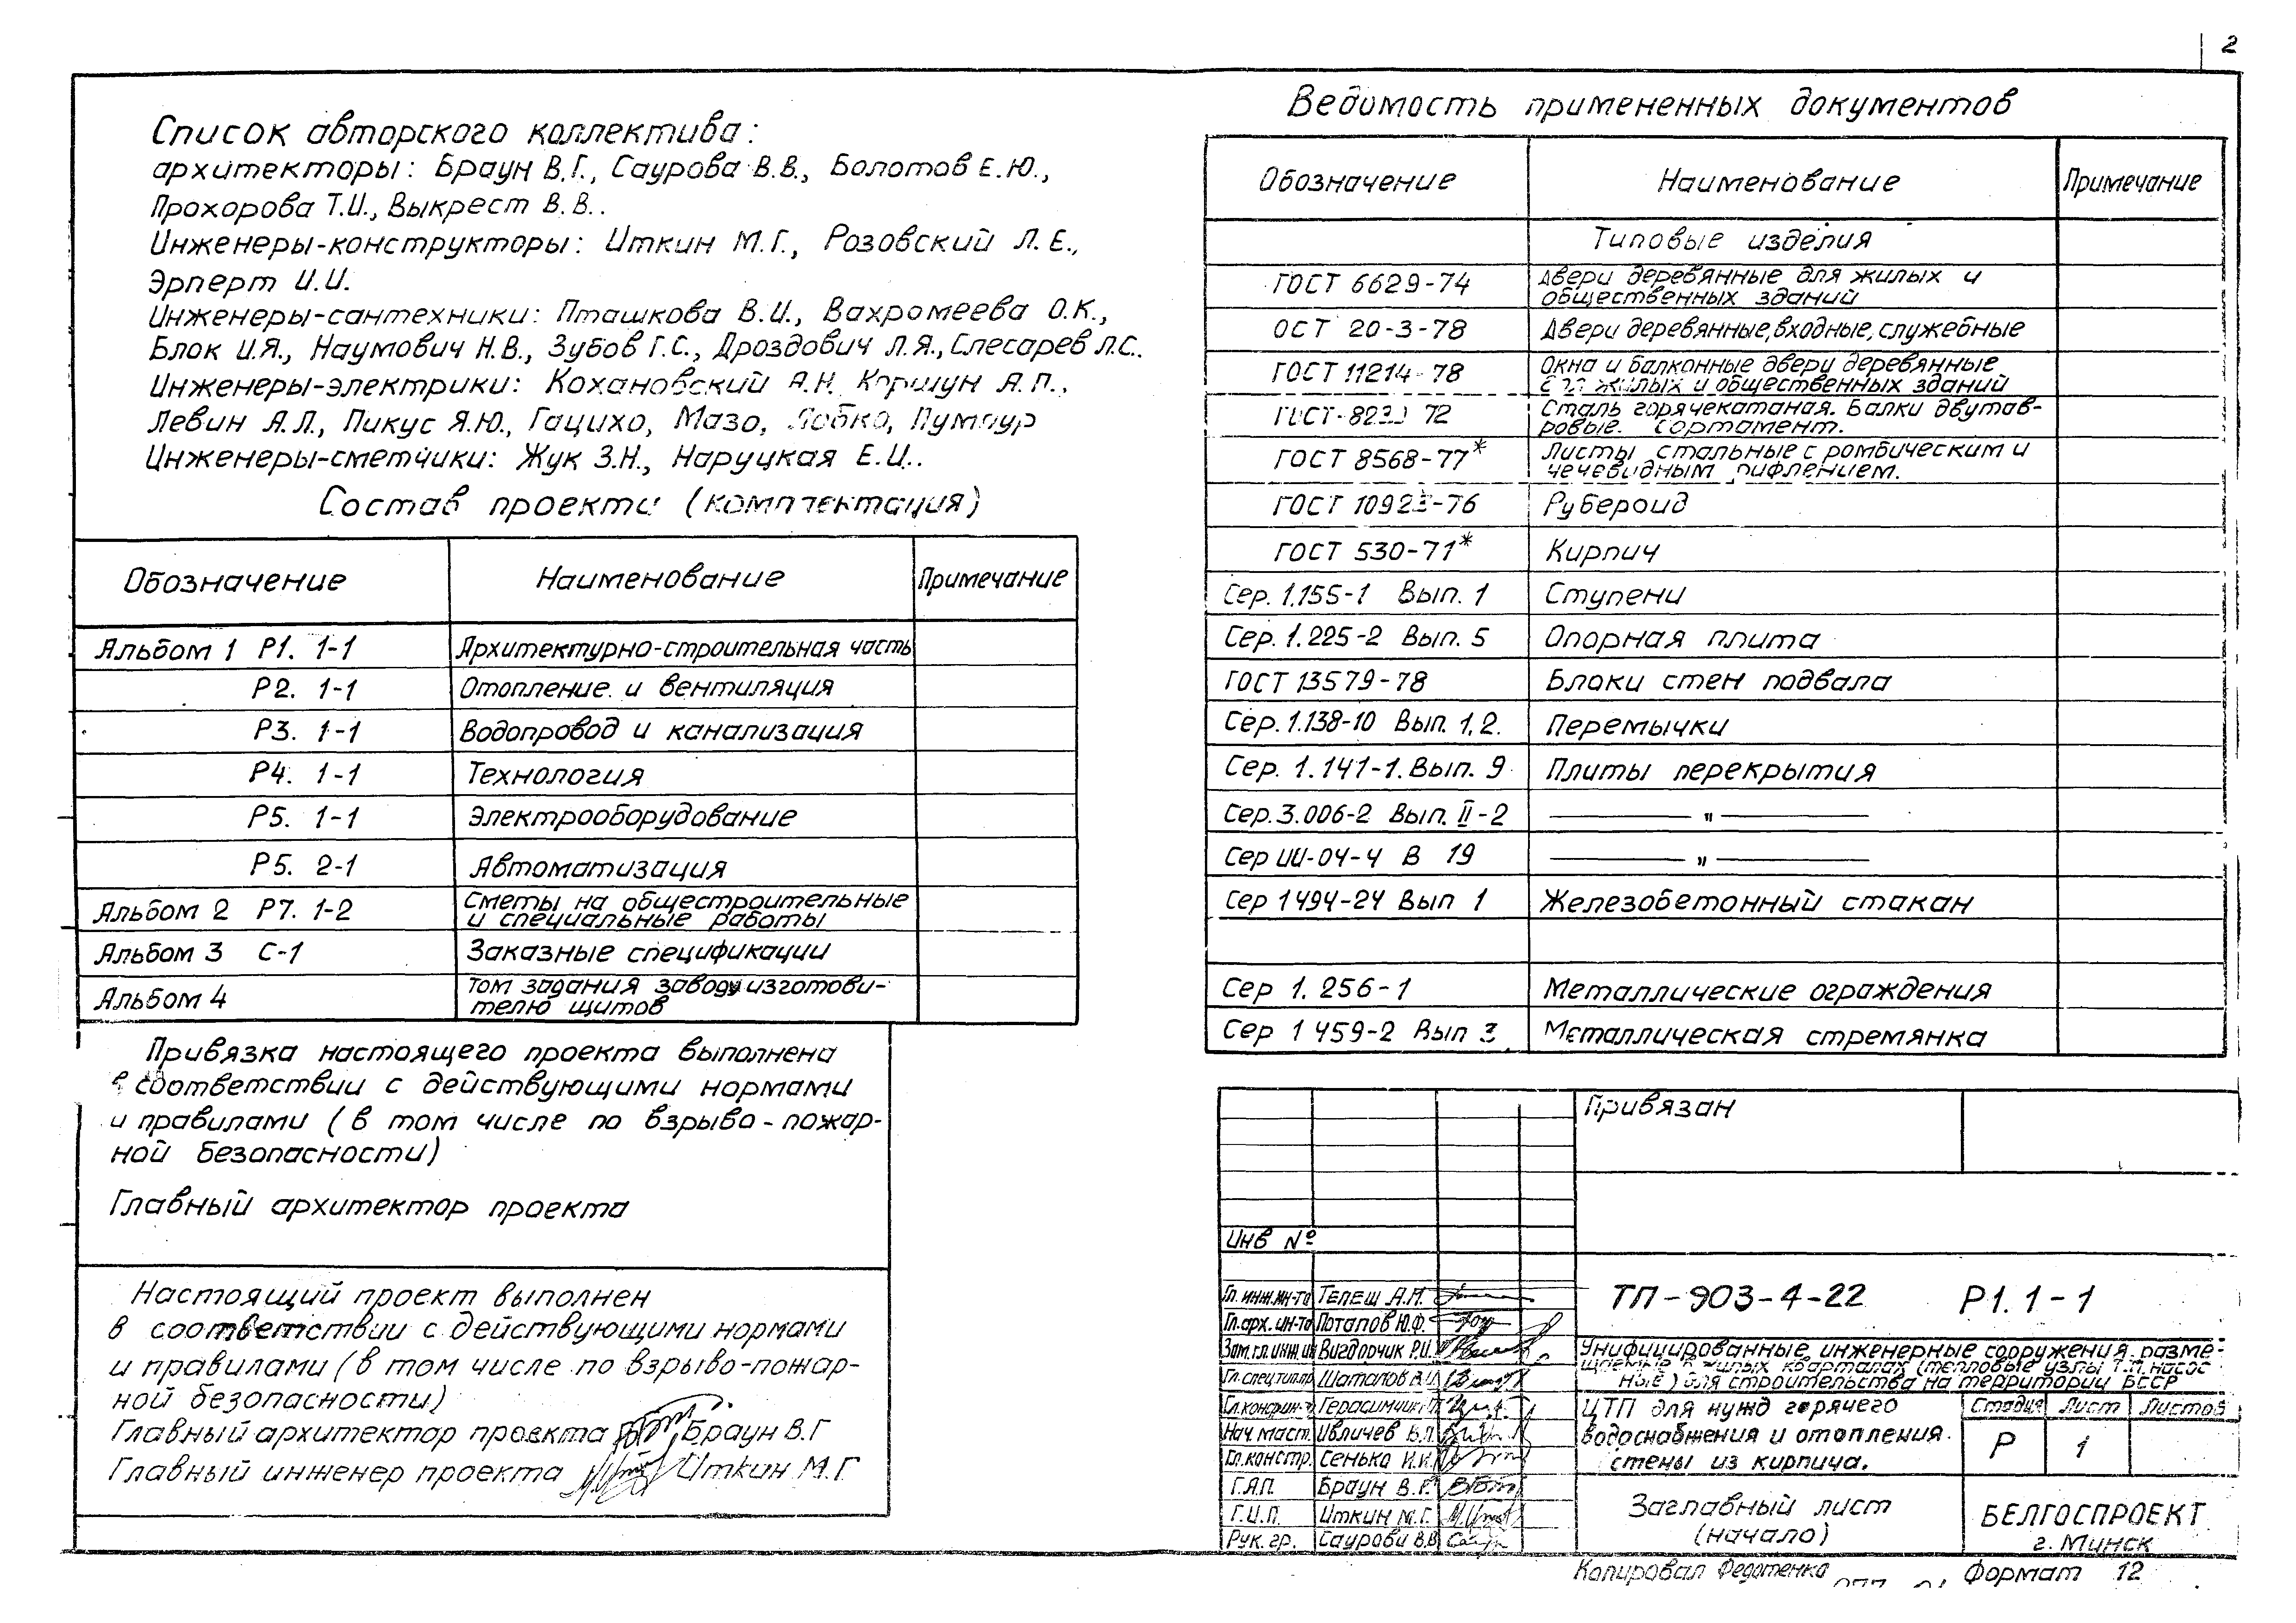 2
Список авторского коллектива:
архитекторы: Браун В.Г., Саурова В.В., Болотов Е.Ю.,
Прохорова Т.И., Выкрест В.В..
Инженеры-конструкторы: Иткин М.Г., Розовский Л.Е.,
Эрперт И.И.
Инженеры-сантехники: Пташкова В.И., Вахромеева О.К.,
Блок И.Я., Наумович Н.В., Зубов Г.С., Дроздович Л.Я., Слесарев Л.С.
Инженеры-электрики: Кохановский А.Н. Коршун А.П.,
Левин А.Л., Пикус Я.Ю., Гацихо, Мазо,
Инженеры-сметчики: Жук З.Н., Наруцкая Е.И..
Состав проекта (комплектация)
Обозначение Наименование Примечание
Альбом 1 Р1. 1-1 Архитектурно-строительная часть
Р2. 1-1 Отопление и вентиляция
Р3. 1-1 Водопровод и канализация
Р4. 1-1 Технология
Р5. 1-1 Электрооборудование
Р5. 2-1 Автоматизация
Альбом 2 Р7. 1-2 Сметы на общестроительные
и специальные работы
Альбом 3 С-1 Заказные спецификации
Альбом 4 Том задания заводу изготови-
телю щитов
Привязка настоящего проекта выполнена
в соответствии с действующими нормами
и правилами (в том числе по взрыво-пожар-
ной безопасности)
Главный архитектор проекта
Настоящий проект выполнен
в соответствии с действующими нормами
и правилами (в том числе по взрыво-пожар-
ной безопасности)
Главный архитектор проекта Браун В.Г
Главный инженер проекта Иткин М.Г
Ведомость примененных документов
Обозначение Наименование Примечание
Типовые изделия
ГОСТ 6629-74 Двери деревянные для жилых и
общественных зданий
ОСТ 20-3-78 Двери деревянные, входные, служебные
ГОСТ 11214-78 Окна и балконные двери деревянные
для жилых и общественных зданий
ГОСТ 72 Сталь горячекатаная. Балки двутав-
ровые. Сортамент.
ГОСТ 8568-77* Листы стальные с ромбическим и
чечевидным рифлением.
ГОСТ 10923-76 Рубероид
ГОСТ 530-71* Кирпич
Сер. 1.155-1 Вып. 1 Ступени
Сер. 1.225-2 Вып. 5 Опорная плита
ГОСТ 13579-78 Блоки стен подвала
Сер. 1.138-10 Вып. 1,2. Перемычки
Сер. 1.141-1. Вып. 9 Плиты перекрытия
Сер. 3.006-2 Вып. II-2 — " —
Сер ИИ-04-4 В 19 — " —
Сер 1 494-24 Вып 1 Железобетонный стакан
Сер 1. 256-1 Металлические ограждения
Сер 1 459-2 Вып 3 Металлическая стремянка
Привязан
Инв №
Гл. инж. ин-та Телеш А.М.
Гл. арх. ин-та Потапов Ю.Ф.
Зам. гл. инж. ин Вигдорчик Р.И.
Гл. спец. тип. пр Шаталов В.И.
Гл. констр ин-т Герасимчик
Нач. маст. Ивличев В.П.
Гл. констр. Сенько И.И.
Г.А.П. Браун В.Г.
Г.И.П. Иткин М.Г.
Рук. гр. Саурова В.В
ТП-903-4-22 Р1. 1-1
Унифицированные инженерные сооружения разме-
щаемые в жилых кварталах (тепловые узлы Т.П. насос
ные) для строительства на территории БССР
ЦТП для нужд горячего
водоснабжения и отопления.
стены из кирпича.
Стадия Лист Листов
Р 1
Заглавный лист
(начало)
БЕЛГОСПРОЕКТ
г. Минск
Копировал Федотенко Формат 12